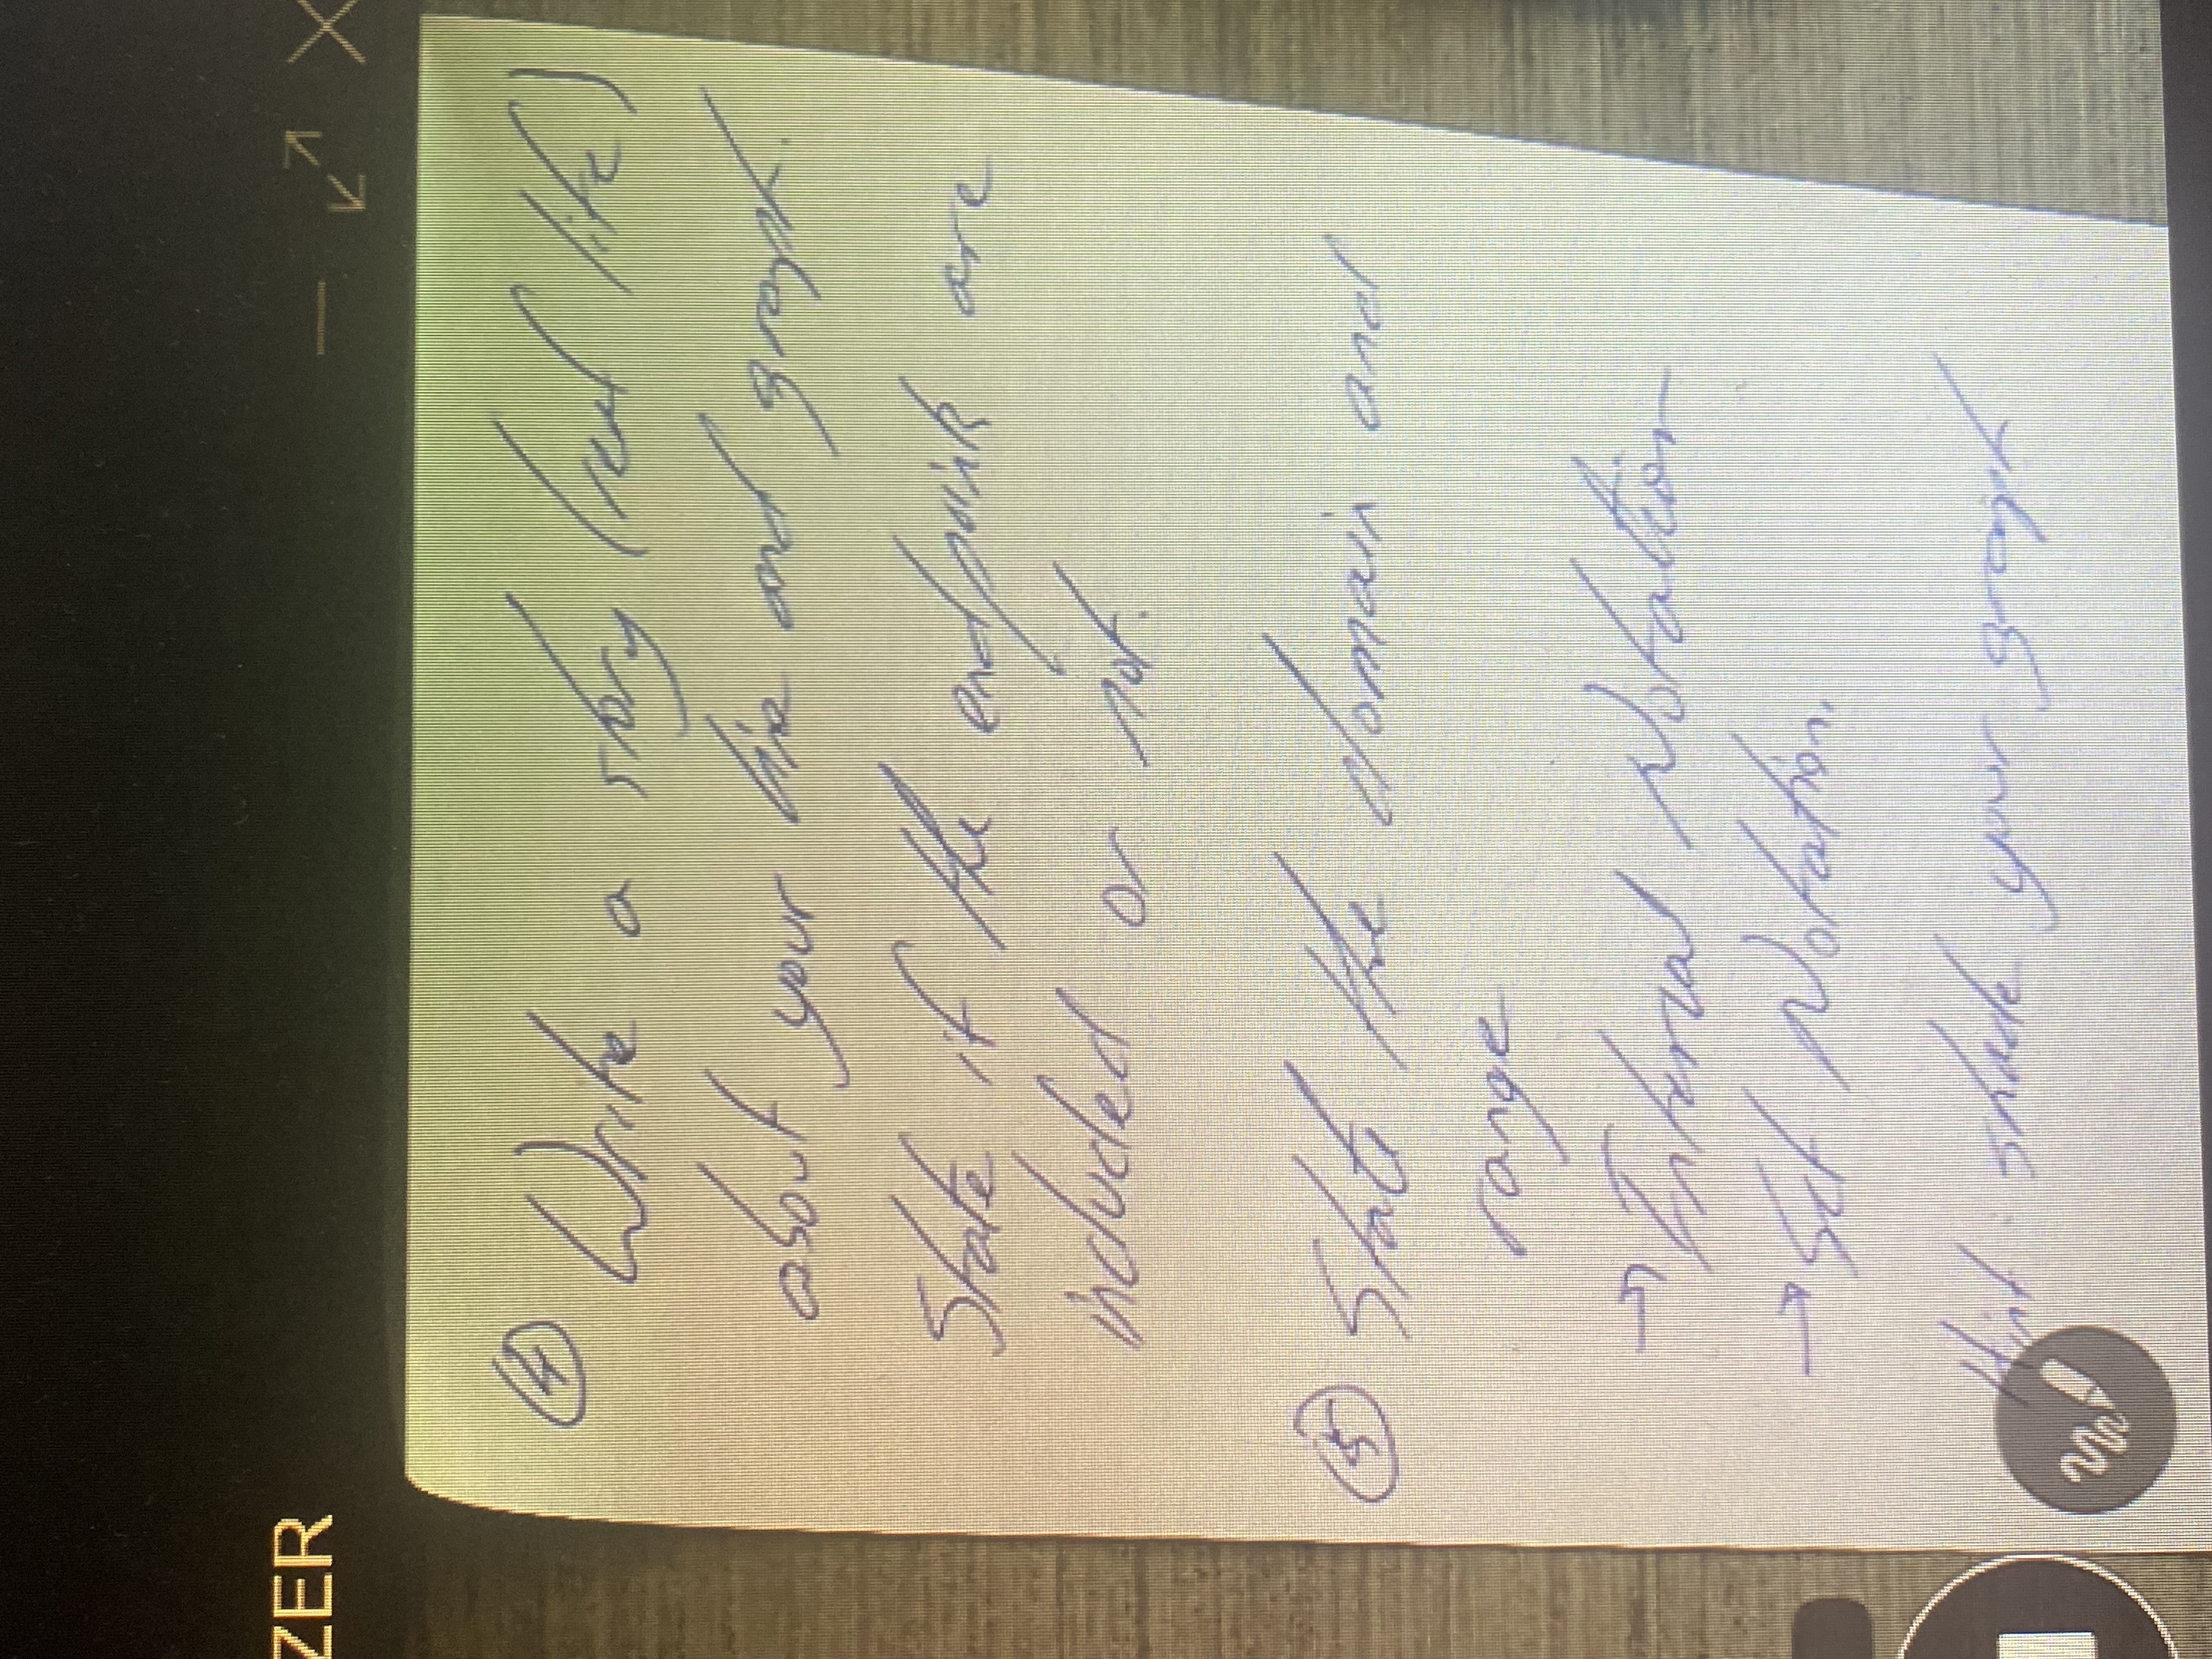 ZER
④ Write a story (real life)
about your line and graph.
State if the endpoints are
included or not.
⑤ State the domain and
range
→ Interval Notation
→ Set Notation.
Hint: shade your graph